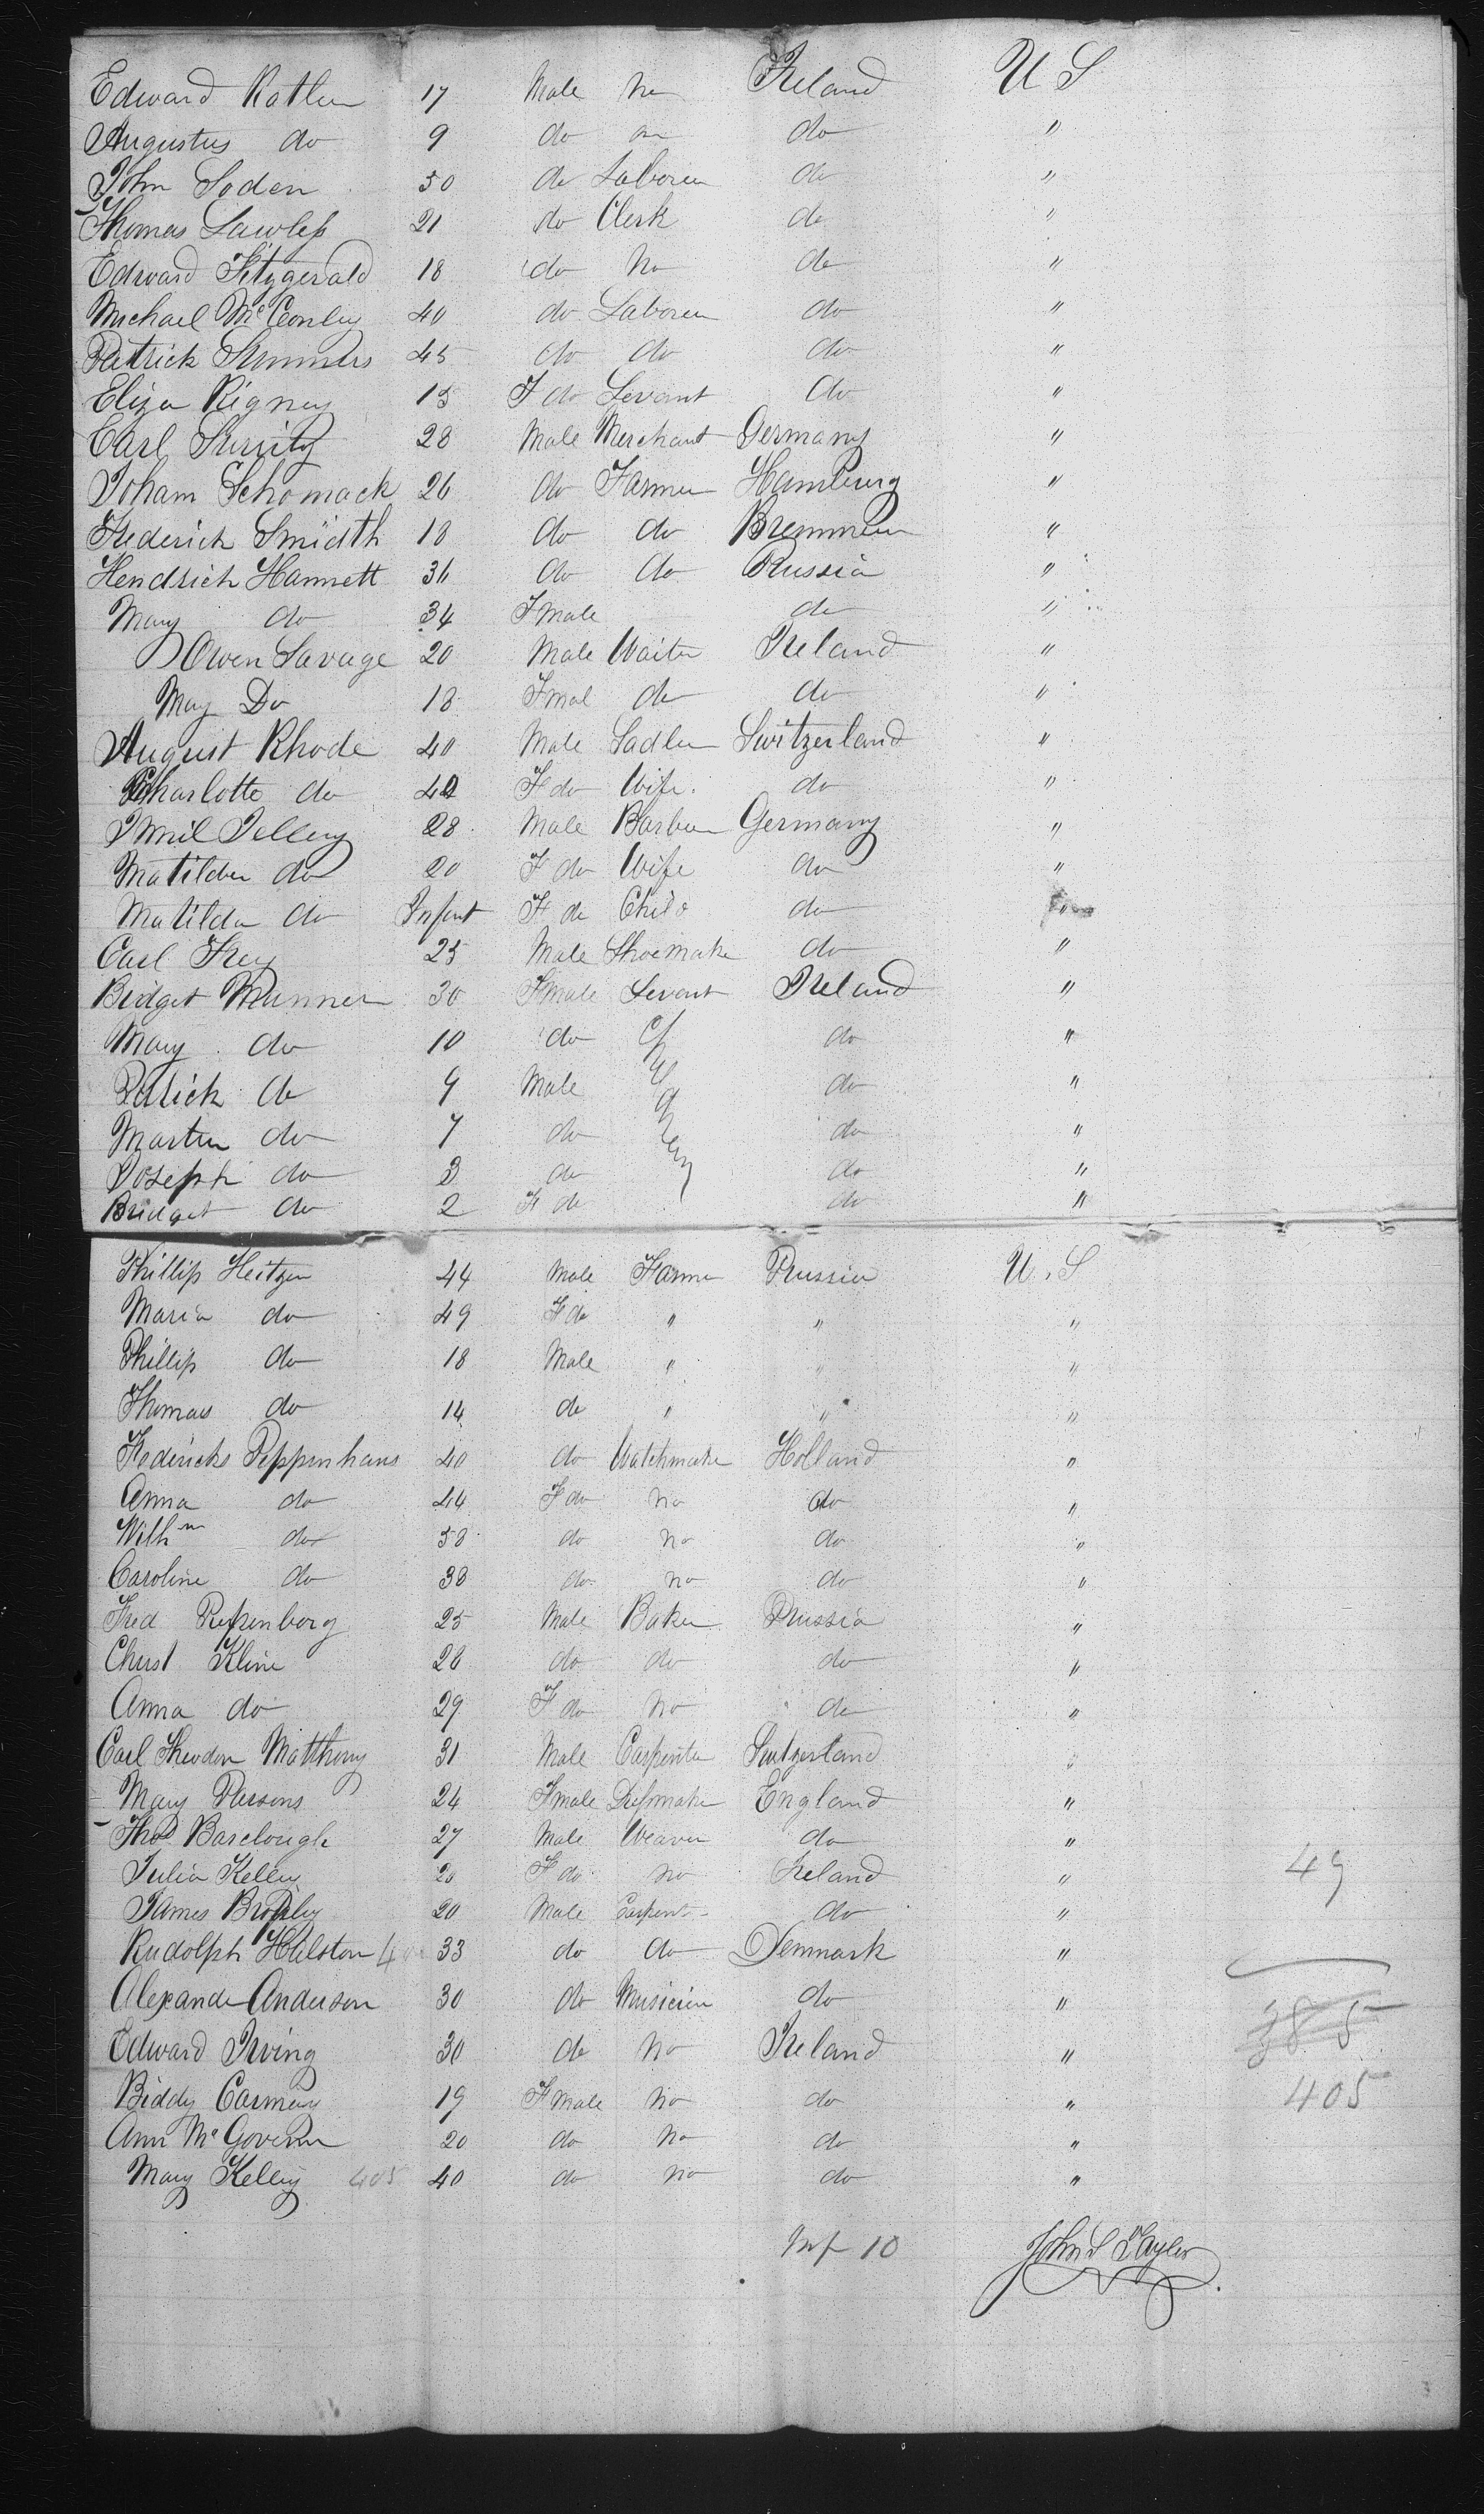 Edward Katlen 17 Male no Ireland U S
Augustus do 9 do no do "
John Soden 50 do Laborer do "
Thomas Lawless 21 do Clerk do "
Edward Fitzgerald 18 do no do "
Michael McConley 40 do Laborer do "
Patrick Summers 45 do do do "
Eliza Rigney 15 F do Servant do "
Carl 28 Male Merchant Germany "
Joham Schomack 26 do Farmer Hamburg "
Frederich Smidth 18 do do Bremmen "
Hendrich Hannett 36 do do Prussia "
Mary do 34 Fmale do "
Owen Savage 20 Male Waiter Ireland "
May Do 18 Fmal do do "
August Rhode 40 Male Sadler Switzerland "
Charlotte do 42 F do Wife do "
Emil Jelley 28 Male Barber Germany "
Matilda do 20 F do Wife do "
Matilda do Infant F do Child do "
Carl Frey 25 Male Shoemaker do "
Bridget Munner 30 Fmale Servant Ireland "
Mary do 10 do Children do "
Patrick do 9 Male do "
Martin do 7 do do "
Joseph do 3 do do "
Bridget do 2 F do do "
Phillip Heitzen 44 Male Farmer Prussia U. S
Maria do 49 F do " " "
Phillip do 18 Male " " "
Thomas do 14 do " " "
Fredericke Peppenhaus 40 do Watchmaker Holland "
Anna do 44 F do no do "
Wilhm do 58 do no do "
Caroline do 38 do no do "
Fred Repenborg 25 Male Baker Prussia "
Christ Kline 26 do do do "
Anna do 29 F do no do "
Carl Theodor Matthey 31 Male Carpenter Switzerland "
Mary Parsons 24 Fmale Dressmaker England "
Thos Barclough 27 Male Weaver do "
Julia Kelley 20 F do no Ireland " 49
James Brophy 20 Male Carpenter do "
Rudolph Halston 33 do do Denmark "
Alexander Anderson 30 do Musician do " 385
Edward Irving 30 do No Ireland "
Biddy Carmey 19 Fmale no do " 405
Ann McGovern 20 do no do "
Mary Kelley 405 40 do no do "
Inf 10 John S Taylor